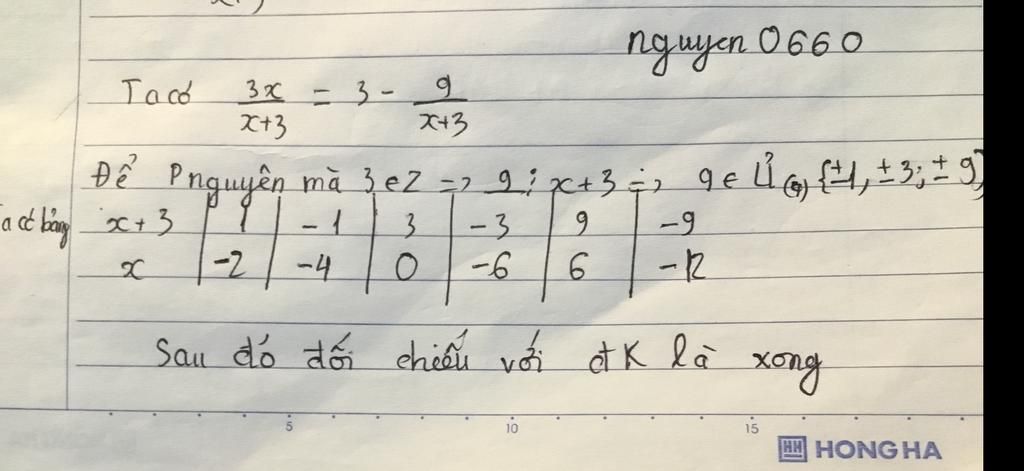 nguyen 0660
Ta có 3x/x+3 = 3 - 9/x+3
Để P nguyên mà 3 ∈ Z => 9 ⋮ x+3 => 9 ∈ Ư(9) {±1, ±3; ±9}
Ta có bảng x+3 | 1 | -1 | 3 | -3 | 9 | -9
x | -2 | -4 | 0 | -6 | 6 | -12
Sau đó đối chiếu với đK là xong
5 10 15
HH HONG HA